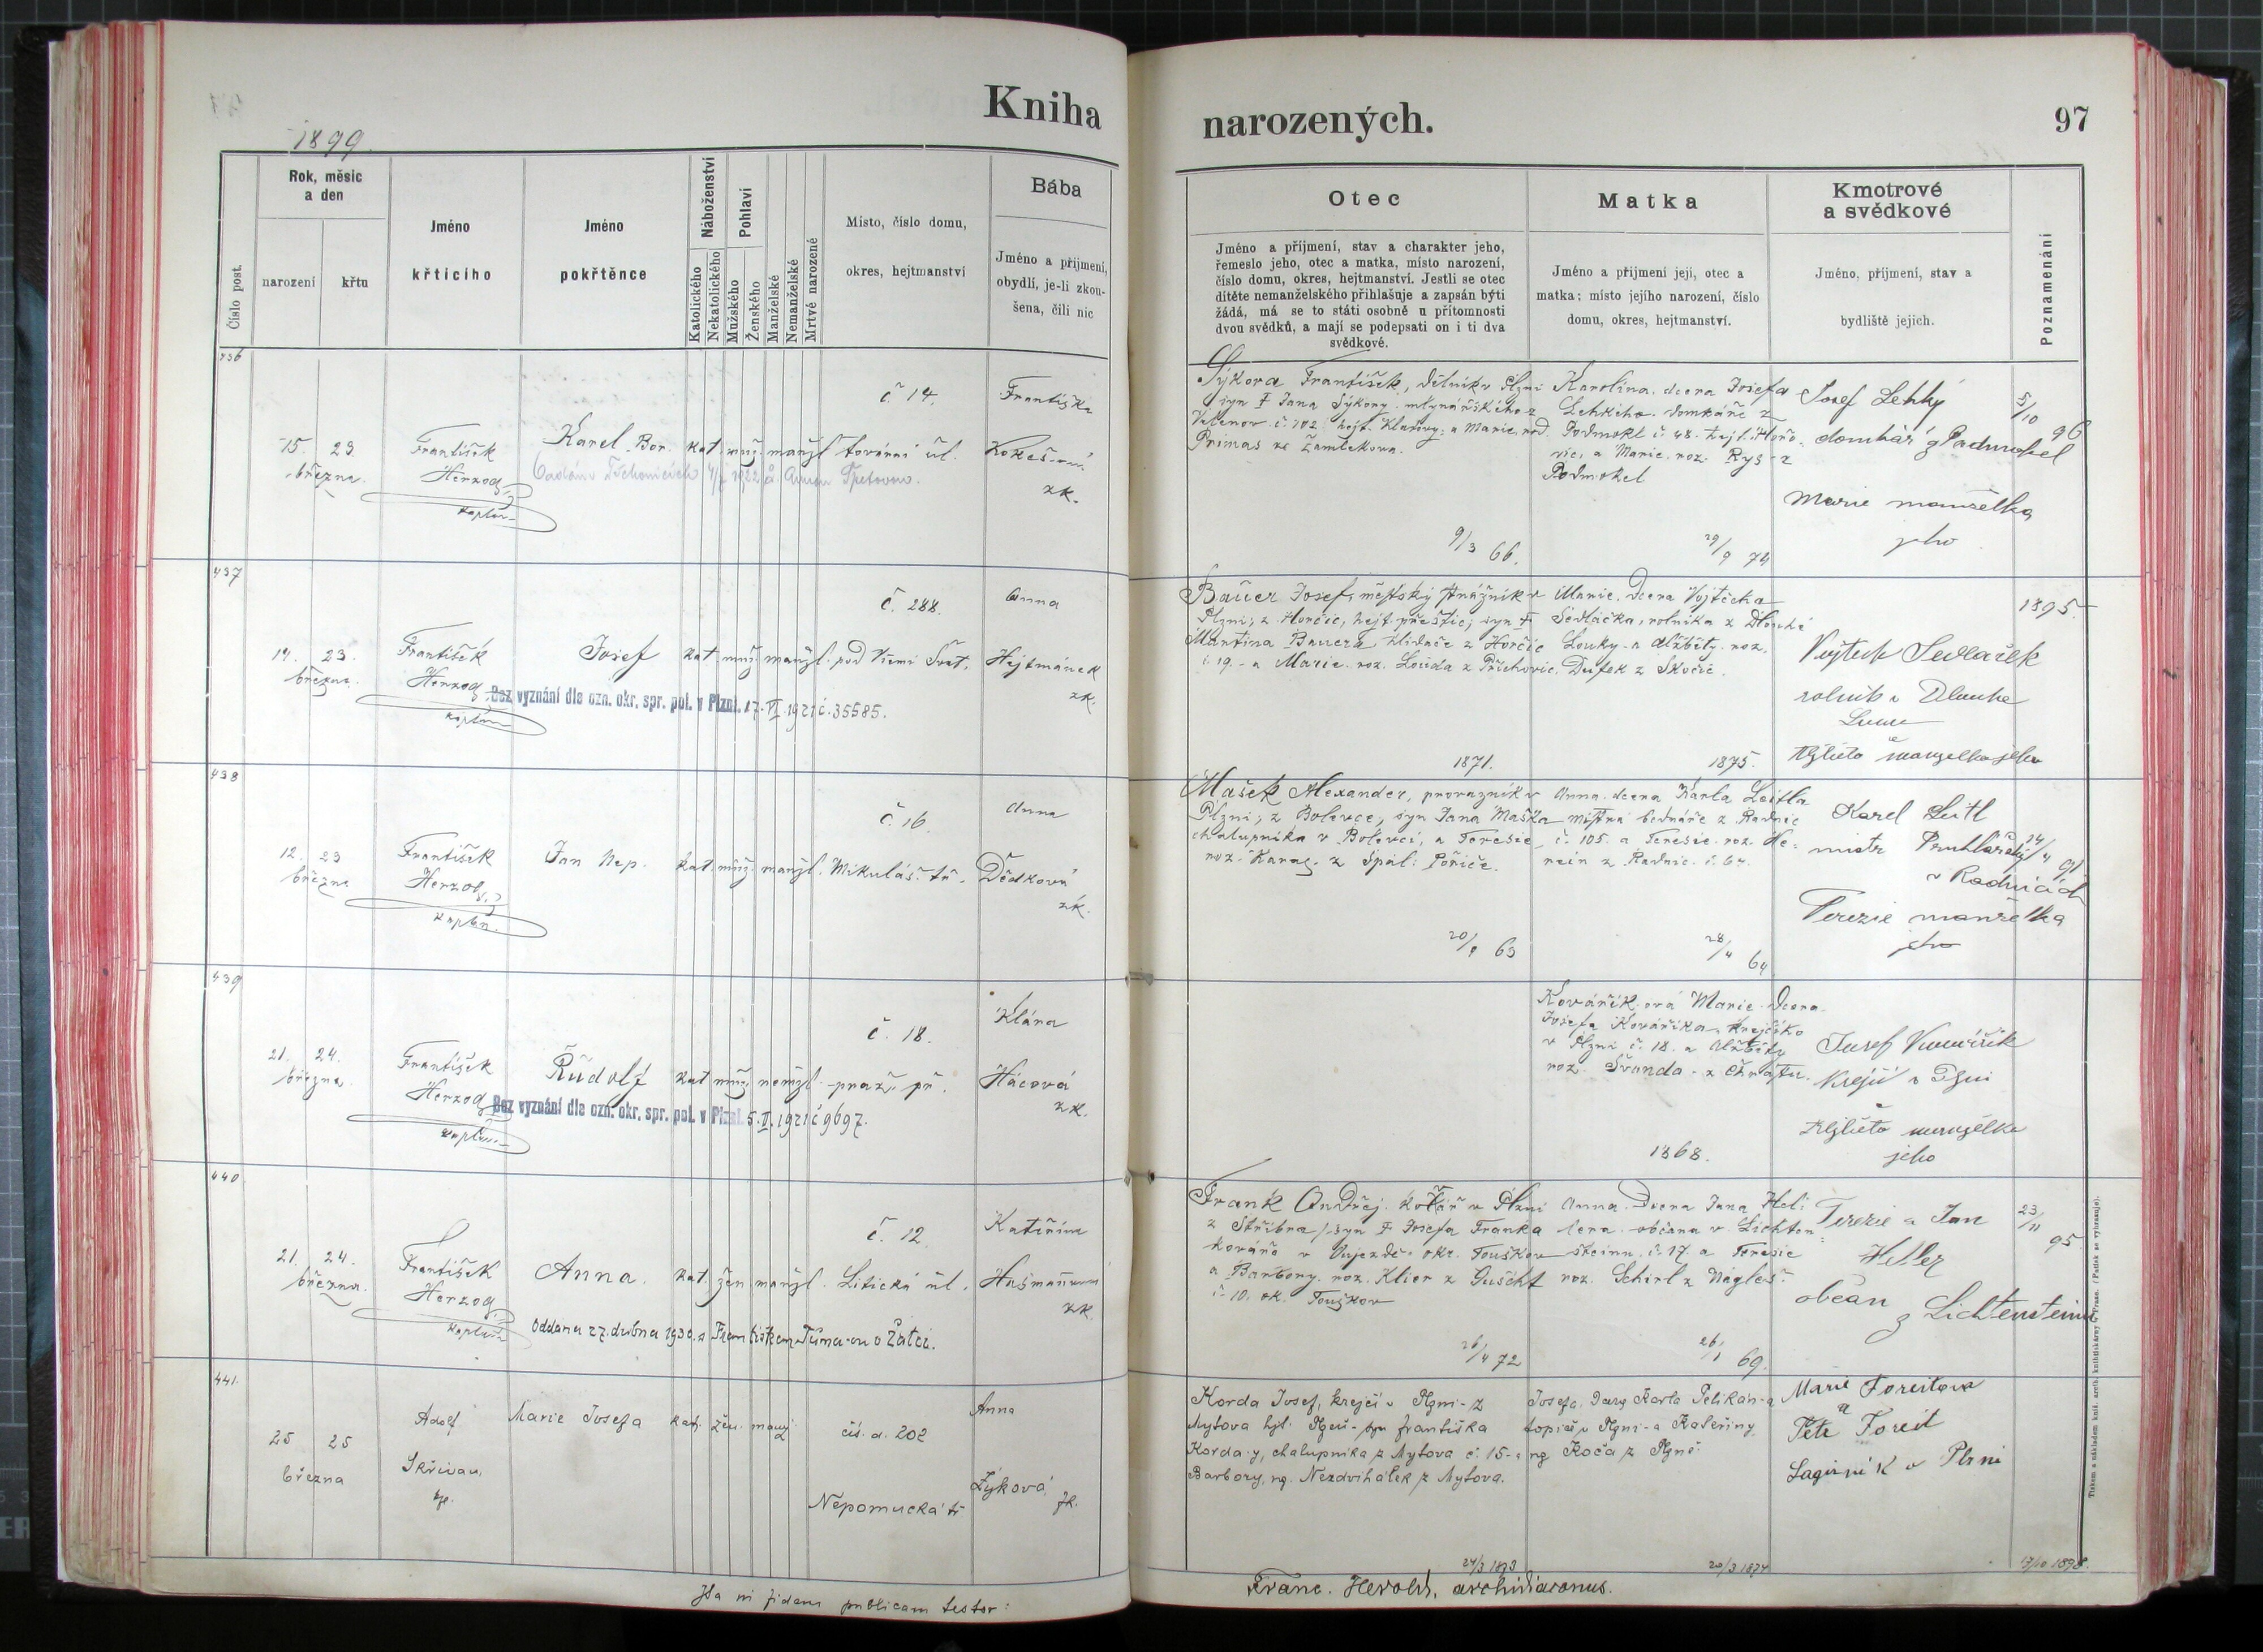 Kniha
1899.
Číslo post.
Rok, měsíc
a den
narození
křtu
Jméno
křtícího
Jméno
pokřtěnce
Náboženství
Katolického
Nekatolického
Pohlaví
Mužského
Ženského
Manželské
Nemanželské
Mrtvě narozené
Místo, číslo domu,
okres, hejtmanství
Bába
Jméno a příjmení,
obydlí, je-li zkou-
šena, čili nic
436
15. 23.
března.
František
Herzog
kaplan
Karel Bor.
kat. muž. manžl.
č. 14.
tovární úl.
Františka
zk.
437
23.
března.
František
Herzog
kaplan
Josef
kat. muž. manžl.
č. 288.
pod Všemi Svat.
Anna
Hejtmánek
zk.
Bez vyznání dle ozn. okr. spr. pol. v Plzni. 17. VI. 1921 č. 35585.
438
12. 23
března
František
Herzog
kaplan.
Jan Nep.
kat. muž. manžl.
č. 16.
Mikuláš. tř.
Anna
Dědková
zk.
439
21. 24.
března.
František
Herzog
kaplan
Rudolf
kat. muž. nemžl.
č. 18.
praž. př.
Klára
Hácová
zk.
Bez vyznání dle ozn. okr. spr. pol. v Plzni. 5. II. 1921 č 9697.
440
21. 24.
března.
František
Herzog
kaplan
Anna.
kat. žen. manžl.
č. 12.
Litická úl.
zk.
Oddána 27. dubna 1930 s Františkem Tůma-ou v Žatci.
441.
25 25
března
Adolf
Skřivan,
kp.
Marie Josefa
kat. žen. manž
čís. d. 202
Nepomucká tř
Anna
Zýková,
zk.
Ita in fidem publicam testor:
narozených.
97
Otec
Jméno a příjmení, stav a charakter jeho,
řemeslo jeho, otec a matka, místo narození,
číslo domu, okres, hejtmanství. Jestli se otec
dítěte nemanželského přihlašuje a zapsán býti
žádá, má se to státi osobně u přítomnosti
dvou svědků, a mají se podepsati on i ti dva
svědkové.
Matka
Jméno a příjmení její, otec a
matka; místo jejího narození, číslo
domu, okres, hejtmanství.
Kmotrové
a svědkové
Jméno, příjmení, stav a
bydliště jejich.
Poznamenání
Sýkora František, dělník v Plzni
syn † Jana Sýkory, mlynářského z
č. 102. hejt. Klatovy, a Marie, rod.
Primas ze Žamlekova.
9/3 66.
Karolina, dcera Josefa
Lehkého, domkáře z
Podmokl č. 48. hejt. Hořo-
vic, a Marie. roz. Rys z
Podmokel
29/9 74
Josef Lehký
domkář z Podmokel
Marie manželka
jeho
5/10 96
Bauer Josef, městský strážník v
Plzni, z Horčic, hejt. přeštic, syn †
Martina Bauera, z Horčic
č. 19. a Marie. roz. Louda z Příchovic.
1871.
Marie. Dcera Vojtěcha
Sedláčka, rolníka z Dlouhé
Louky a Alžběty. roz.
Dušek z Skočic.
1875.
Vojtěch Sedláček
rolník z Dlouhé
Alžběta manželka jeho
1895.
Mašek Alexander, provazník v
Plzni, z Bolevce, syn Jana Maška
chalupníka v Bolevci, a Teresie,
roz. z Spál. Poříčí.
63
Anna. dcera Karla Leitla
mistra bednáře z Radnic
č. 105. a Teresie. roz. He-
rein z Radnic. č. 64.
28/4 64
Karel Leitl
mistr Truhlářský
v Radnicích
Terezie manželka
jeho
24/4 91
Kovářík-ová Marie. Dcera
Josefa Kováříka, krejčího
v Plzni č. 18. a Alžběty
roz. Švanda z
1868.
Josef Kovařík
krejčí v Plzni
Alžběta manželka
jeho
Frank Ondřej. kočář v Plzni
z Stříbra, syn † Josefa Franka
kováře v Vujezdě. okr. Touškov
a Barbory. roz. Klier z Guscht
č. 10. ok. Touškov
26/4 72
Anna. Dcera Jana Hel-
lera. občana v Lichten-
steinu. č. 17. a Teresie
roz. Schirl z
26/1 69.
Terezie a Jan
Heller
občan
z Lichtensteinu
23/11 95
Korda Josef, krejčí v Plzni - z
Mýtova hjt. Plzeň - syn Františka
Korda-y, chalupníka z Mýtova č. 15 - a
Barbory, roz. Nezdvihálek z Mýtova.
24/3 1873
Josefa, dcery Karla Pelikán-a
topiče v Plzni - a Kateřiny,
roz Koča z Plzně.
20/3 1874
Marie Foreitova
a
Petr Foreit
v Plzni
17/10 1898.
Franc. Herold, archidiaconus.